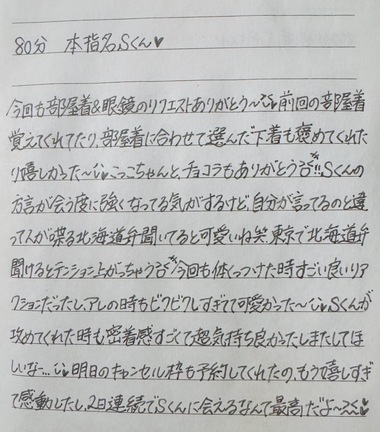 80分 本指名Sくん♥
今回も部屋着&眼鏡のリクエストありがとう〜♥前回の部屋着
覚えてくれてたり、部屋着に合わせて選んだ下着も褒めてくれた
り嬉しかった〜♥こっこちゃんと、チョコラもありがとう!!Sくんの
方言が会う度に強くなってる気がするけど、自分が言ってるのと違
って人が喋る北海道弁聞いてると可愛いね笑、東京で北海道弁
聞けるとテンション上がっちゃう 今回も体くっつけた時すごい良いリア
クションだったし、アレの時もビクビクしすぎてて可愛かった〜♥Sくんが
攻めてくれた時も密着感すごくて超気持ち良かったしまたしてほ
しいな…♥明日のキャンセル枠も予約してくれたの、もう嬉しすぎ
て感動したし、2日連続でSくんに会えるなんて最高だよ〜♥